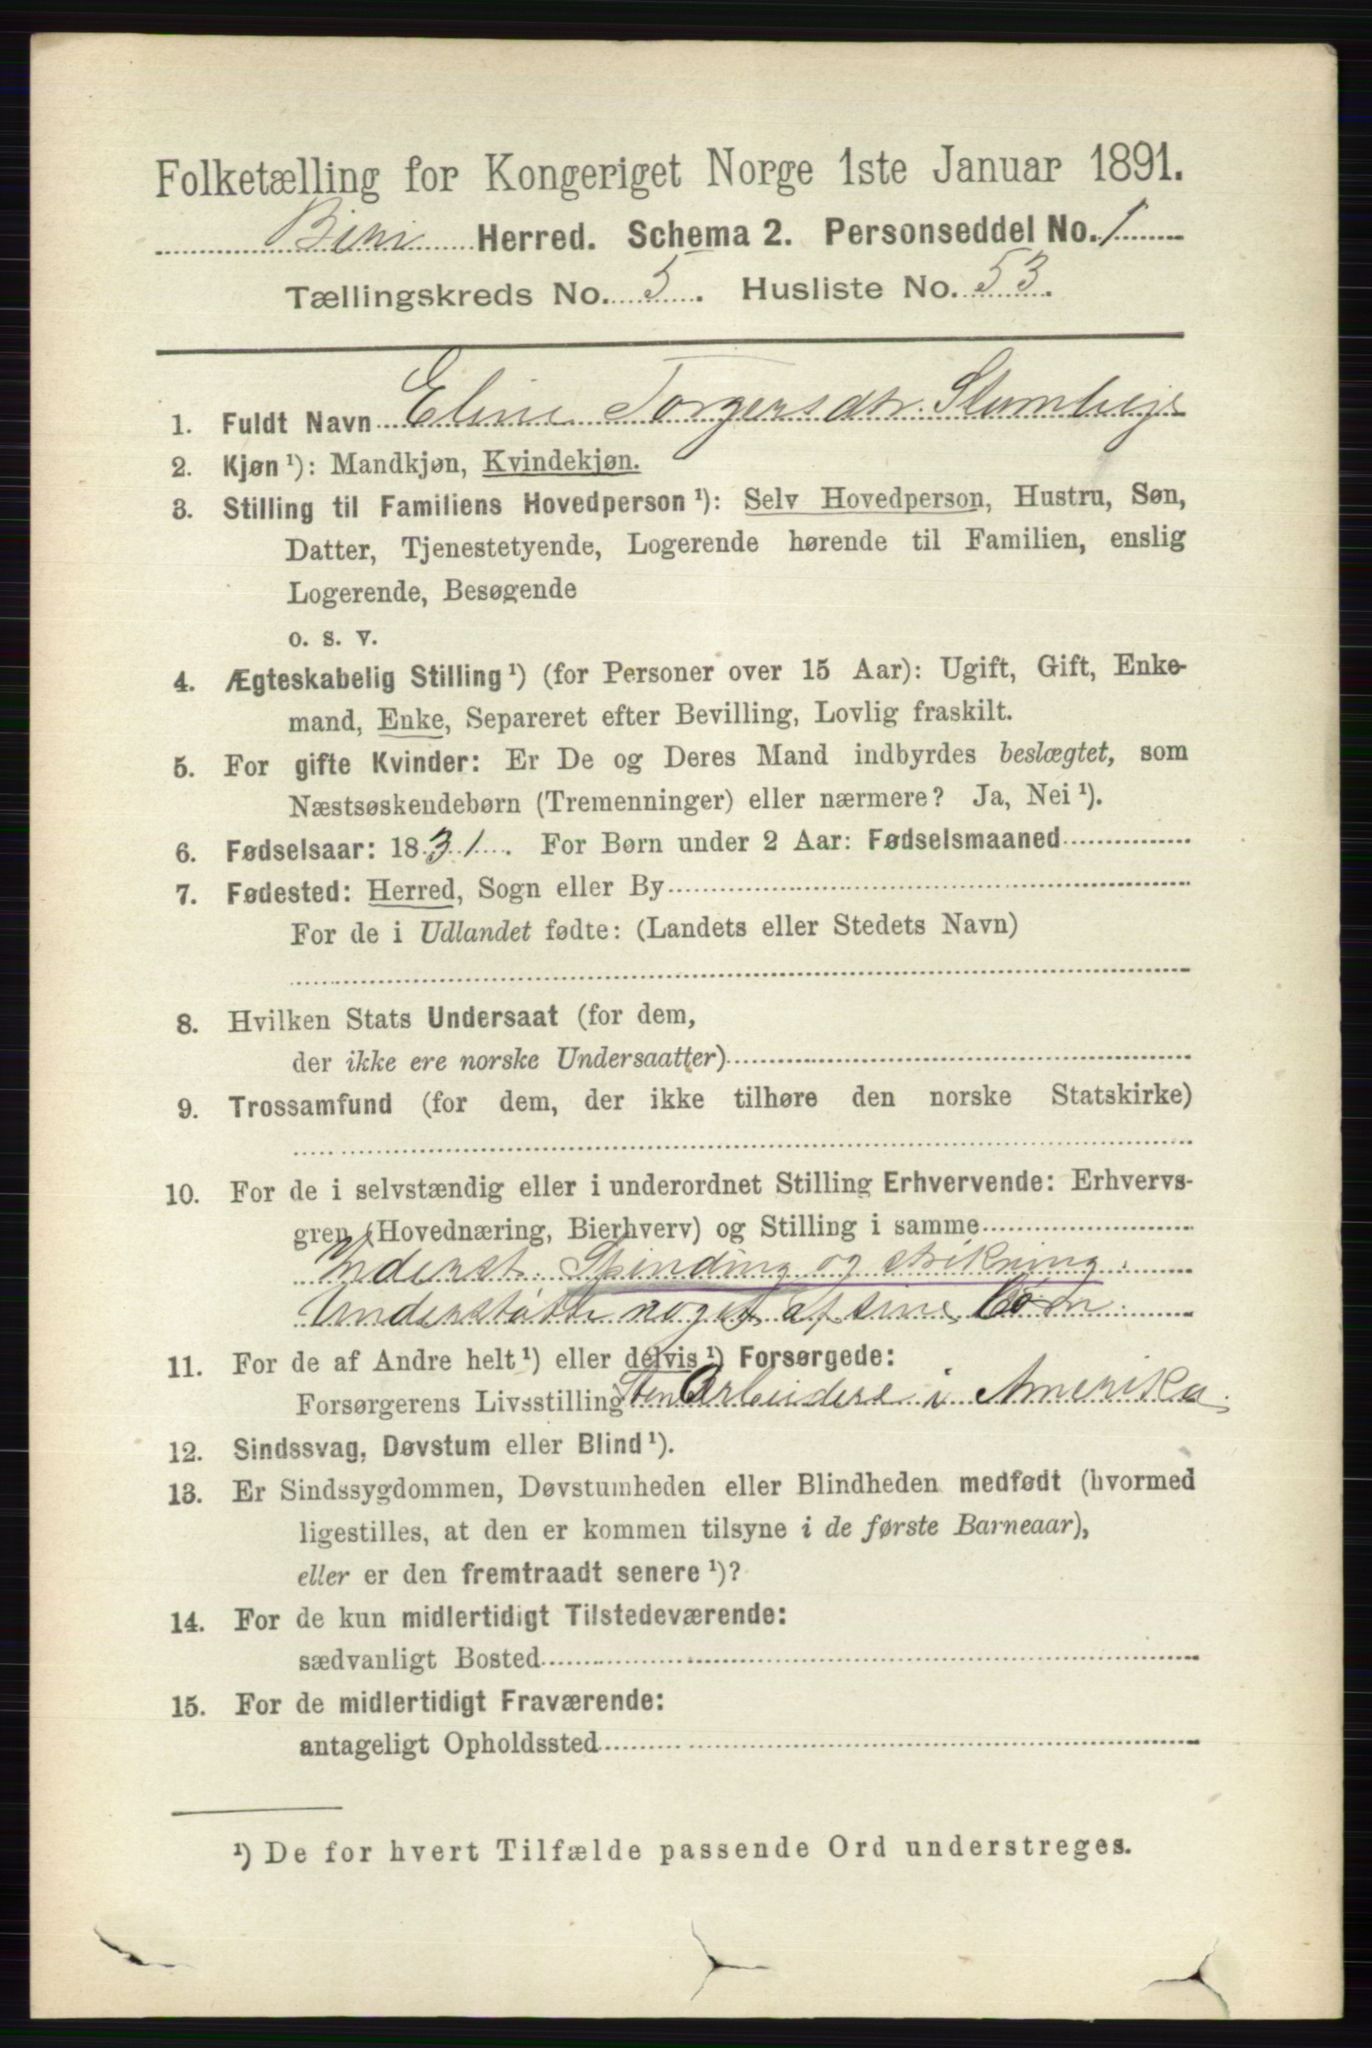 Folketælling for Kongeriget Norge 1ste Januar 1891.
Biri Herred. Schema 2. Personseddel No. 1
Tællingskreds No. 5. Husliste No. 53.
1. Fuldt Navn Eline Torgersdtr. Stumlieje
2. Kjøn ¹): Mandkjøn, Kvindekjøn.
3. Stilling til Familiens Hovedperson ¹): Selv Hovedperson, Hustru, Søn,
Datter, Tjenestetyende, Logerende hørende til Familien, enslig
Logerende, Besøgende
o. s. v.
4. Ægteskabelig Stilling ¹) (for Personer over 15 Aar): Ugift, Gift, Enke-
mand, Enke, Separeret efter Bevilling, Lovlig fraskilt.
5. For gifte Kvinder: Er De og Deres Mand indbyrdes beslægtet, som
Næstsøskendebørn (Tremenninger) eller nærmere? Ja, Nei ¹).
6. Fødselsaar: 1831. For Børn under 2 Aar: Fødselsmaaned
7. Fødested: Herred, Sogn eller By
For de i Udlandet fødte: (Landets eller Stedets Navn)
8. Hvilken Stats Undersaat (for dem,
der ikke ere norske Undersaatter)
9. Trossamfund (for dem, der ikke tilhøre den norske Statskirke)
10. For de i selvstændig eller i underordnet Stilling Erhvervende: Erhvervs-
gren (Hovednæring, Bierhverv) og Stilling i samme
Inderst. Spinding og strikning.
Understøtte noget af sine Børn.
11. For de af Andre helt ¹) eller delvis ¹) Forsørgede:
Forsørgerens Livsstilling Arbeidere i Amerika.
12. Sindssvag, Døvstum eller Blind ¹).
13. Er Sindssygdommen, Døvstumheden eller Blindheden medfødt (hvormed
ligestilles, at den er kommen tilsyne i de første Barneaar),
eller er den fremtraadt senere ¹)?
14. For de kun midlertidigt Tilstedeværende:
sædvanligt Bosted
15. For de midlertidigt Fraværende:
antageligt Opholdssted
¹) De for hvert Tilfælde passende Ord understreges.